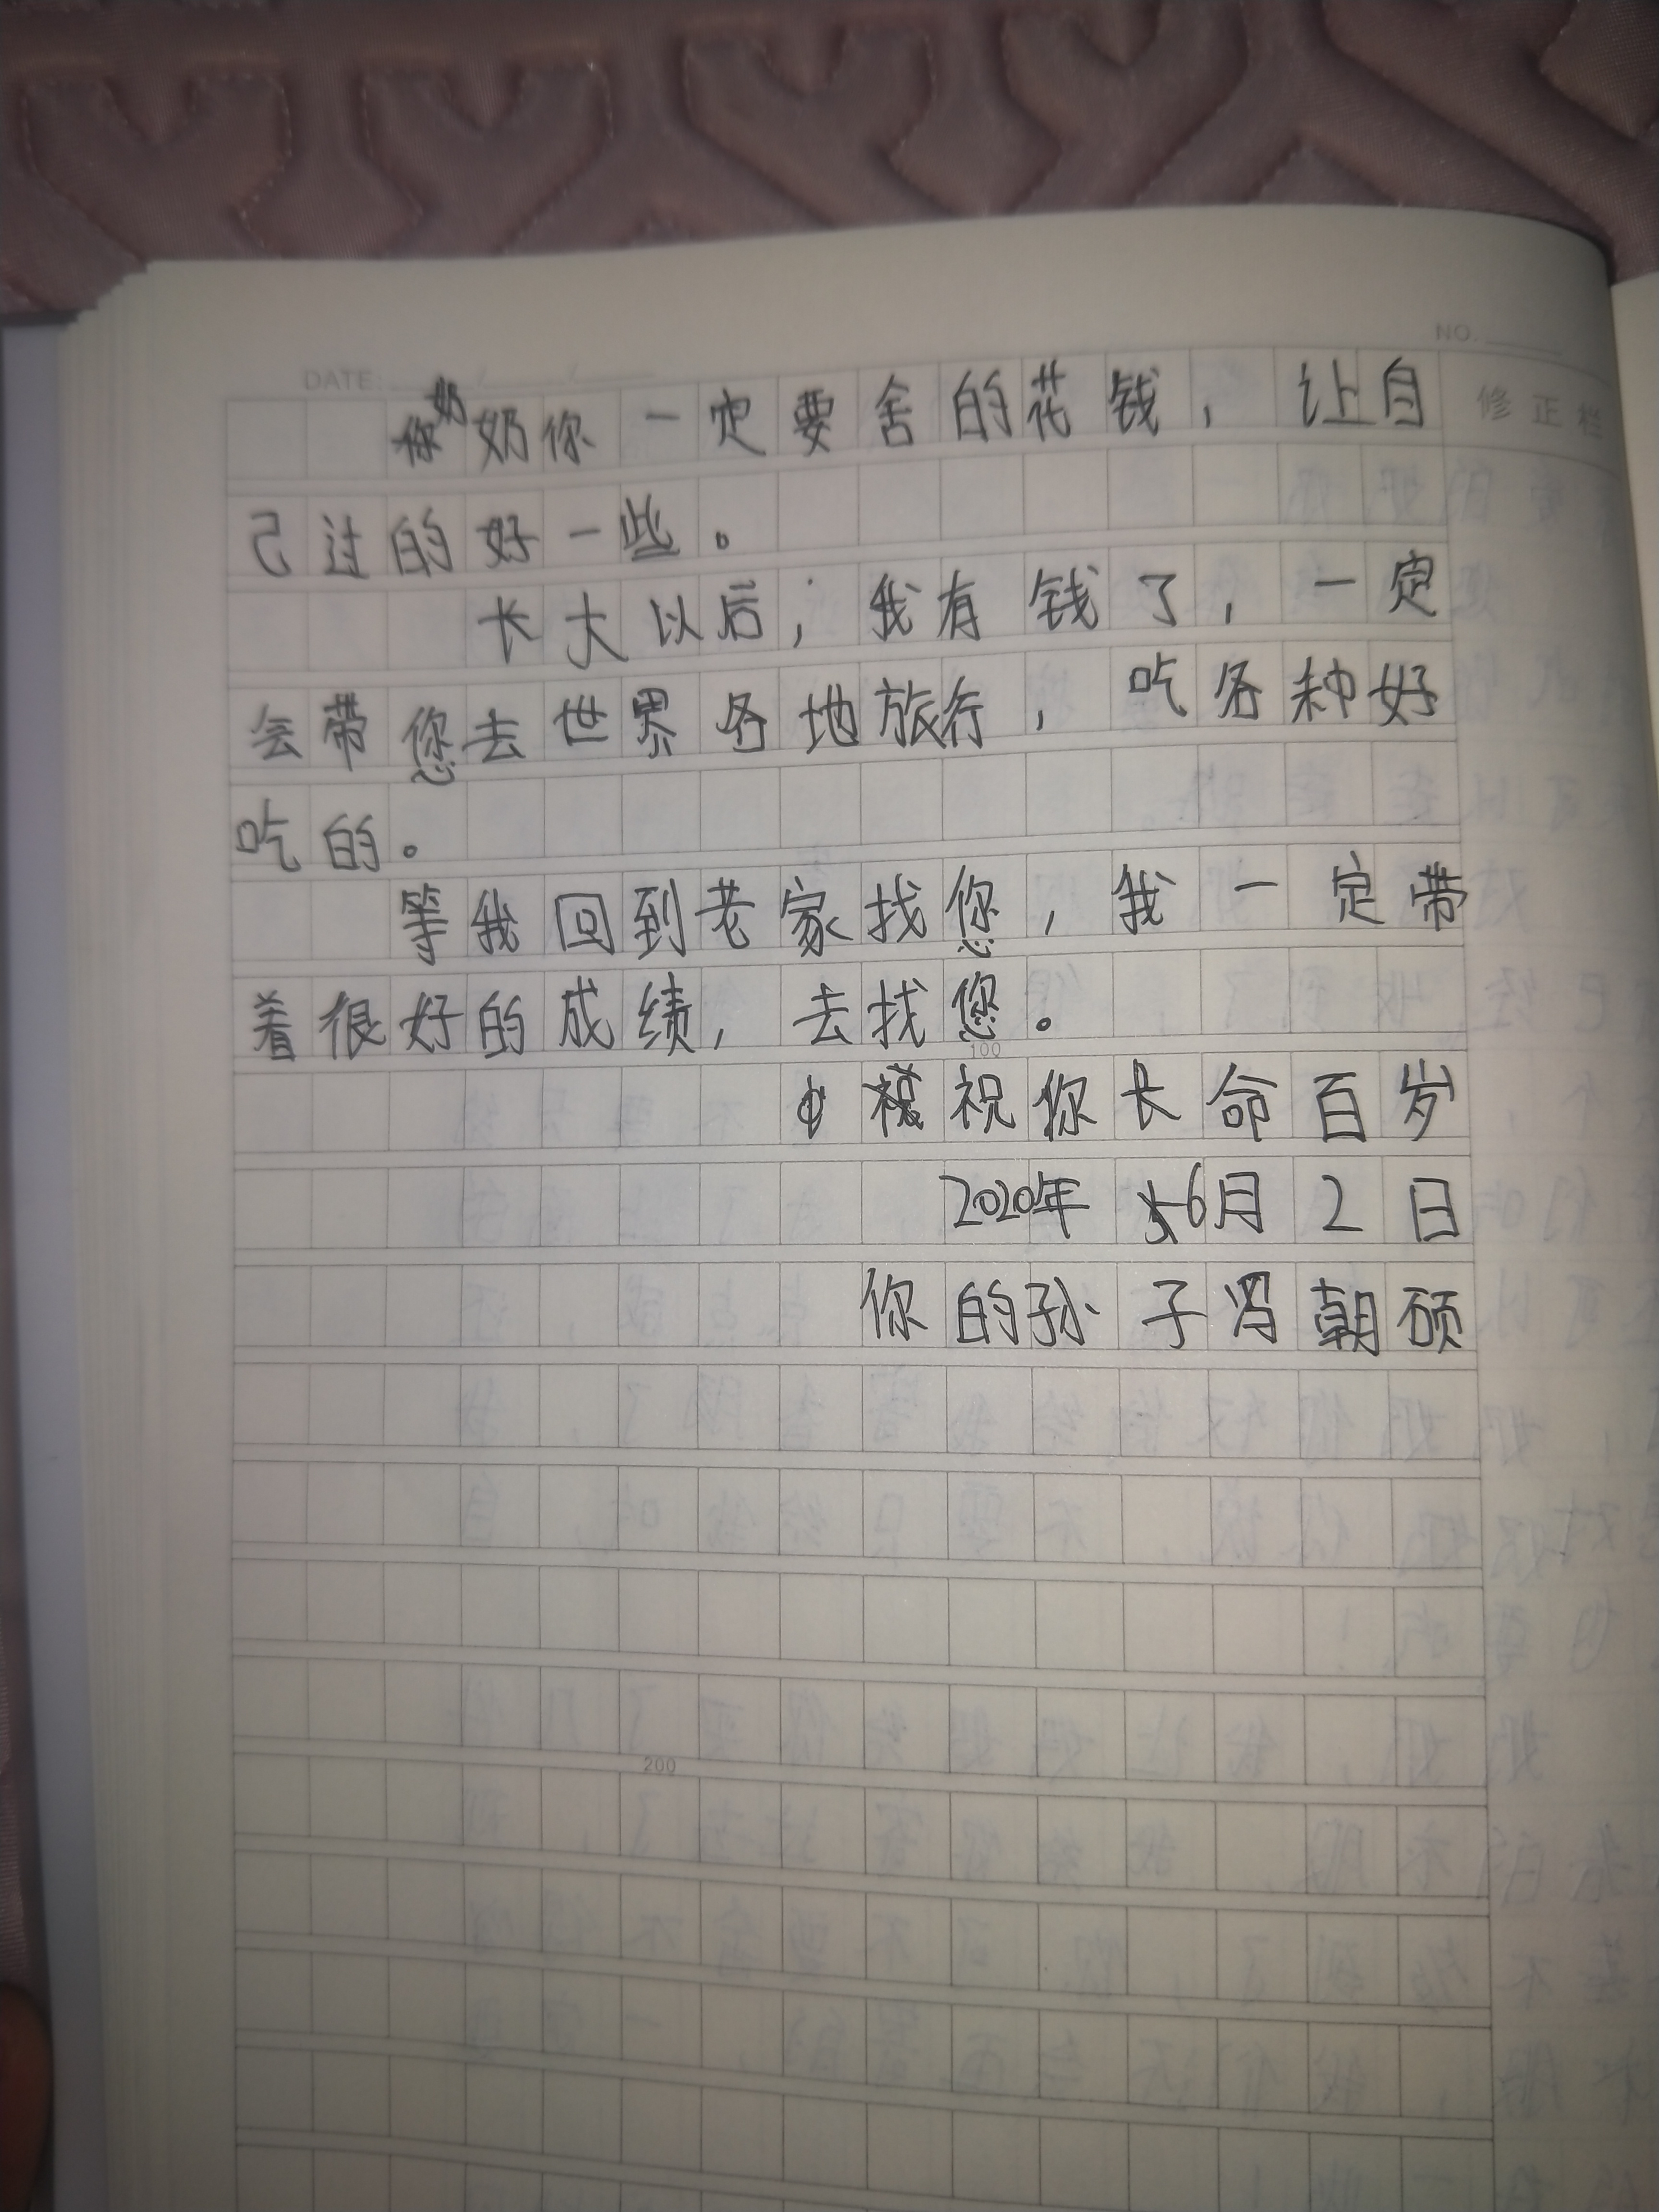 NO.
DATE: / /
修正栏
奶奶你一定要舍的花钱，让自
己过的好一些。
长大以后，我有钱了，一定
会带您去世界各地旅行，吃各种好
吃的。
等我回到老家找您，我一定带
着很好的成绩，去找您。
100
祝你长命百岁
2020年6月2日
你的孙子冯朝硕
200